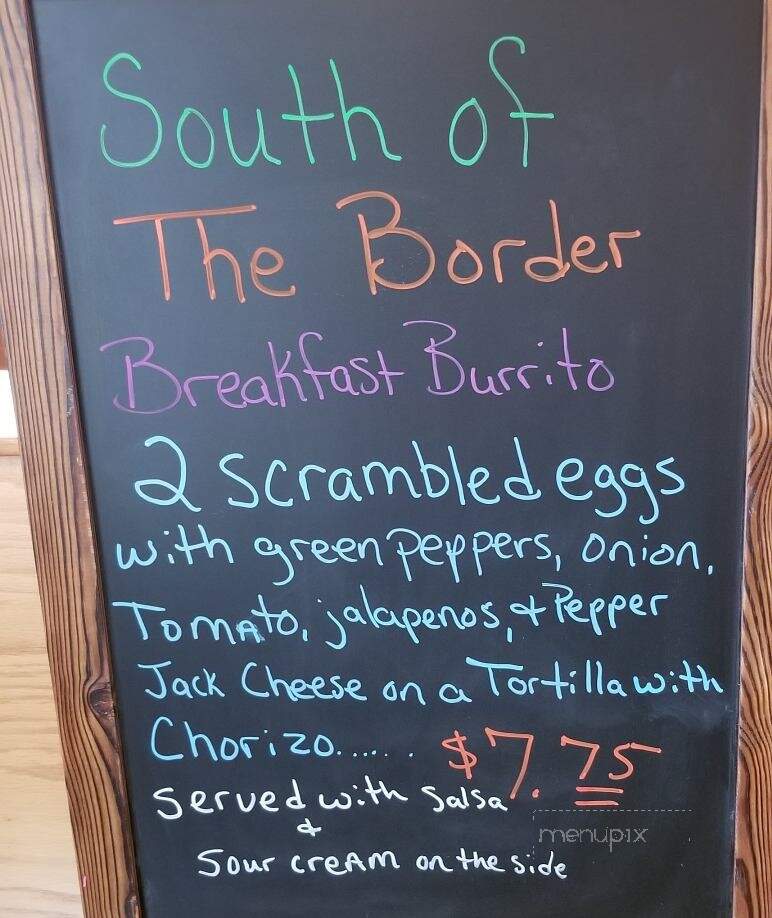 South of
The Border
Breakfast Burrito
2 scrambled eggs
with green peppers, onion,
Tomato, jalapenos, & Pepper
Jack Cheese on a Tortilla with
Chorizo...... $7.75
Served with Salsa
&
Sour cream on the side
menupix